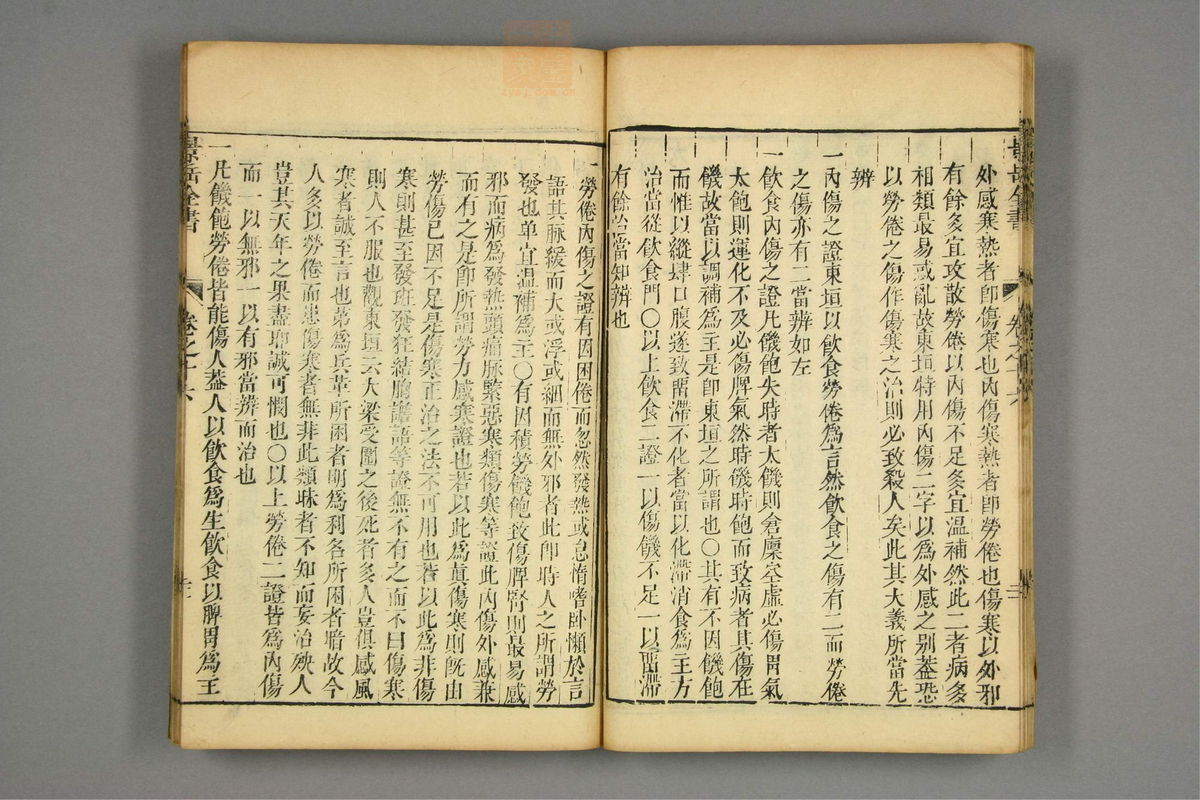 景岳全書
卷之十六
外感寒熱者即傷寒也內傷寒熱者即勞倦也傷寒以外邪
有餘多宜攻散勞倦以內傷不足多宜溫補然此二者病多
相類最易惑亂故東垣特用內傷二字以為外感之别葢恐
以勞倦之傷作傷寒之治則必致殺人矣此其大義所當先
辨
一內傷之證東垣以飲食勞倦為言然飲食之傷有二而勞倦
之傷亦有二當辨如左
一飲食內傷之證凡饑飽失時者太饑則倉廩空虛必傷胃氣
太飽則運化不及必傷脾氣然時饑時飽而致病者其傷在
饑故當以調補為主是即東垣之所謂也〇其有不因饑飽
而惟以縱肆口腹遂致畱滯不化者當以化滯消食為主方
治當從飲食門〇以上飲食二證一以傷饑不足一以畱滯
有餘所當知辨也
一勞倦內傷之證有因困倦而忽然發熱或怠惰嗜卧懶於言
語其脉緩而大或浮或細而無外邪者此即時人之所謂勞
發也单宜温補為主〇有因積勞饑飽致傷脾腎則最易感
邪而病為發熱頭痛脉緊惡寒類傷寒等證此內傷外感兼
而有之是即所謂勞力感寒證也若以此為真傷寒則既由
勞傷已因不足是傷寒正治之法不可用也若以此為非傷
寒則甚至發班發狂結胸譫語等證無不有之而不曰傷寒
則人不服也觀東垣云大梁受圍之後死者多人豈俱感風
寒者誠至言也第為兵革所困者明為利名所困者暗故今
人多以勞倦而患傷寒者無非此類昧者不知而妄治殃人
豈其天年之果盡耶誠可憫也〇以上勞倦二證皆為內傷
而一以無邪一以有邪當辨而治也
一凡饑飽勞倦皆能傷人葢人以飲食為生飲食以脾胃為主
景岳全書
卷之十六